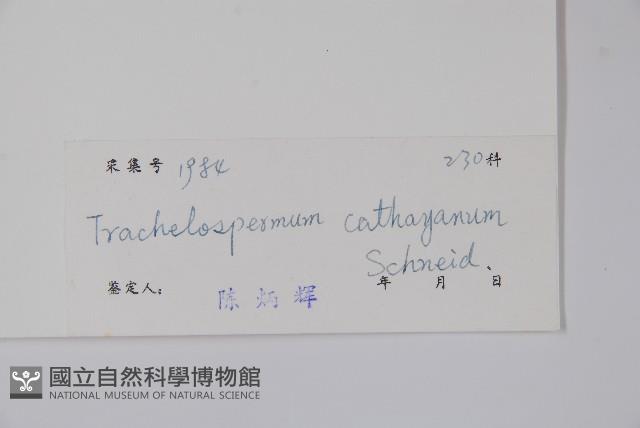 采集号 1984 230科
Trachelospermum cathayanum
Schneid.
鉴定人: 陈炳辉 年 月 日
國立自然科學博物館
NATIONAL MUSEUM OF NATURAL SCIENCE